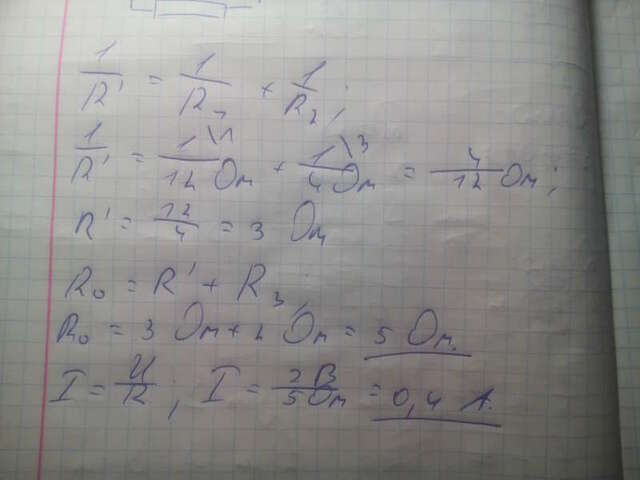 1/R' = 1/R₁ + 1/R₂;
1/R' = 1\1/12 Ом + 1\3/4 Ом = 4/12 Ом;
R' = 12/4 = 3 Ом
R₀ = R' + R₃;
R₀ = 3 Ом + 2 Ом = 5 Ом.
I = U/R; I = 2В/5Ом = 0,4 А.